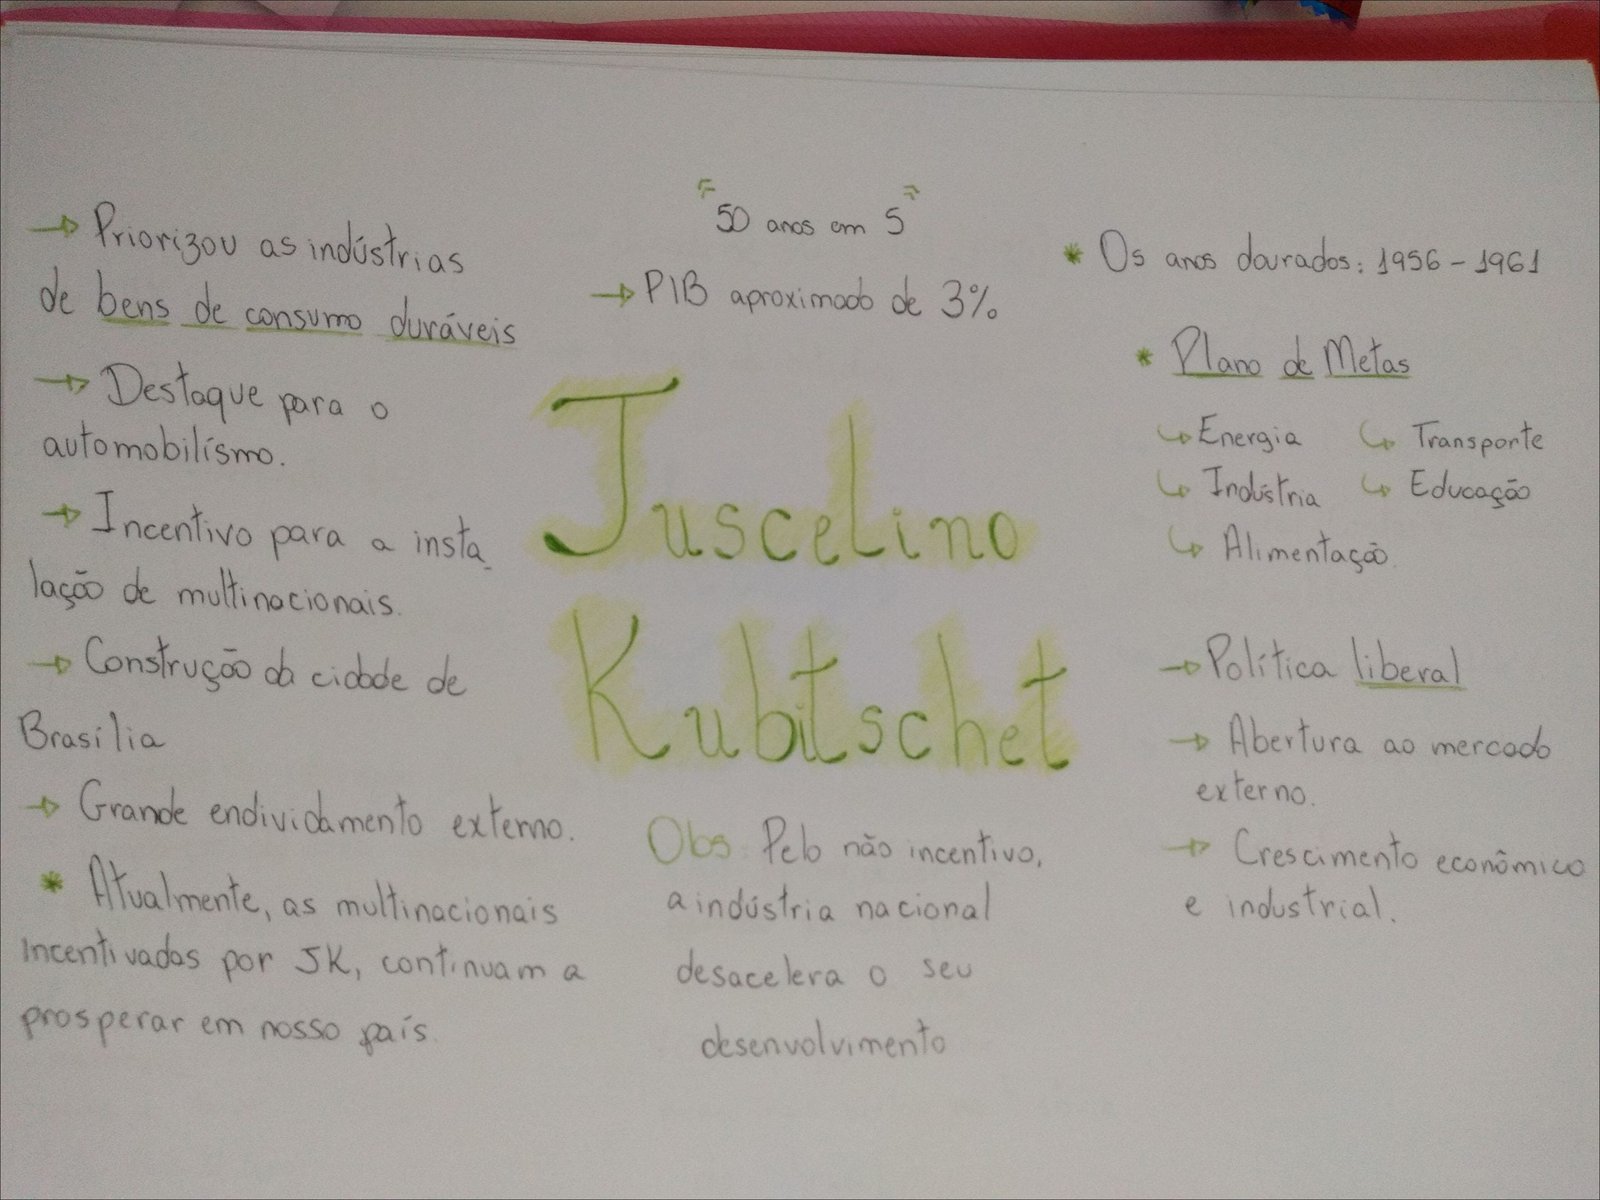 → Priorizou as indústrias
de bens de consumo duráveis
→ Destaque para o
automobilísmo.
→ Incentivo para a insta_
lação de multinacionais.
→ Construção da cidade de
Brasília
→ Grande endividamento externo.
* Atualmente, as multinacionais
incentivadas por JK, continuam a
prosperar em nosso país.
"50 anos em 5"
→ PIB aproximado de 3%
Juscelino
Kubitschet
Obs: Pelo não incentivo,
a indústria nacional
desacelera o seu
desenvolvimento
* Os anos dourados: 1956 - 1961
* Plano de Metas
↳ Energia ↳ Transporte
↳ Indústria ↳ Educação
↳ Alimentação
→ Política liberal
→ Abertura ao mercado
externo.
→ Crescimento econômico
e industrial.